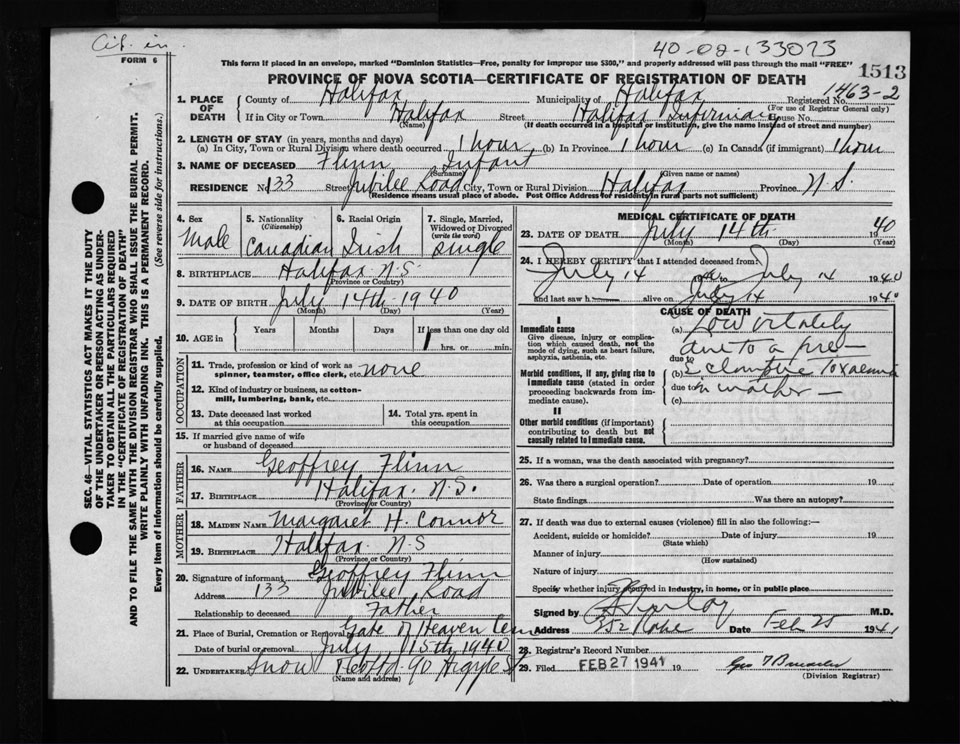 Cit. in.
40-02-133073
FORM 6
This form if placed in an envelope, marked "Dominion Statistics—Free, penalty for improper use $300," and properly addressed will pass through the mail "FREE"
1513
PROVINCE OF NOVA SCOTIA—CERTIFICATE OF REGISTRATION OF DEATH
1463-2
1. PLACE OF DEATH County of Halifax Municipality of Halifax Registered No.
(For use of Registrar General only)
If in City or Town Halifax Street Halifax Infirmary House No.
(Name) (If death occurred in a hospital or institution, give the name instead of street and number)
2. LENGTH OF STAY (in years, months and days)
(a) In City, Town or Rural Division where death occurred 1 hour (b) In Province 1 hour (c) In Canada (if immigrant) 1 hour
3. NAME OF DECEASED Flinn Infant
(Surname) (Given name or names)
RESIDENCE No. 133 Street Jubilee Road City, Town or Rural Division Halifax Province N.S.
(Residence means usual place of abode. Post Office Address for residents in rural parts not sufficient)
4. Sex
Male
5. Nationality
(Citizenship)
Canadian
6. Racial Origin
Irish
7. Single, Married,
Widowed or Divorced
(write the word)
Single
8. BIRTHPLACE Halifax N.S.
(Province or Country)
9. DATE OF BIRTH July 14th 1940
(Month) (Day) (Year)
10. AGE in Years Months Days If less than one day old
1 hrs. or min.
OCCUPATION
11. Trade, profession or kind of work as
spinner, teamster, office clerk, etc. none
12. Kind of industry or business, as cotton-
mill, lumbering, bank, etc.
13. Date deceased last worked
at this occupation
14. Total yrs. spent in
this occupation
15. If married give name of wife
or husband of deceased
FATHER
16. NAME Geoffrey Flinn
17. BIRTHPLACE Halifax. N.S.
(Province or Country)
MOTHER
18. MAIDEN NAME Margaret H. Connor
19. BIRTHPLACE Halifax. N.S
(Province or Country)
20. Signature of informant Geoffrey Flinn
Address 133 Jubilee Road
Relationship to deceased Father
21. Place of Burial, Cremation or Removal Gate of Heaven Cem
Date of burial or removal July 15th 1940
22. UNDERTAKER Snow & Co Ltd. 90 Argyle St
(Name and address)
MEDICAL CERTIFICATE OF DEATH
23. DATE OF DEATH July 14th 1940
(Month) (Day) (Year)
24. I HEREBY CERTIFY that I attended deceased from:
July 14 to July 14 1940
and last saw h alive on July 14 1940
CAUSE OF DEATH
I
Immediate cause
Give disease, injury or complica-
tion which caused death, not the
mode of dying, such as heart failure,
asphyxia, asthenia, etc.
(a) Low vitality
due to a pre-
due to
(b) Eclamptic Toxaemia
due to in mother-
(c)
Morbid conditions, if any, giving rise to
immediate cause (stated in order
proceeding backwards from im-
mediate cause).
II
Other morbid conditions (if important)
contributing to death but not
causally related to immediate cause.
25. If a woman, was the death associated with pregnancy?
26. Was there a surgical operation? Date of operation 19
State findings Was there an autopsy?
27. If death was due to external causes (violence) fill in also the following:—
Accident, suicide or homicide? Date of injury 19
(State which)
Manner of injury
(How sustained)
Nature of injury
Specify whether injury occurred in industry, in home, or in public place
Signed by M.D.
Address 252 Date Feb 25 1941
28. Registrar's Record Number
29. Filed FEB 27 1941 19
(Division Registrar)
SEC. 46—VITAL STATISTICS ACT MAKES IT THE DUTY
OF THE UNDERTAKER OR PERSON ACTING AS UNDER-
TAKER TO OBTAIN ALL THE PARTICULARS REQUIRED
IN THE "CERTIFICATE OF REGISTRATION OF DEATH"
AND TO FILE THE SAME WITH THE DIVISION REGISTRAR WHO SHALL ISSUE THE BURIAL PERMIT.
WRITE PLAINLY WITH UNFADING INK. THIS IS A PERMANENT RECORD.
Every item of information should be carefully supplied. (See reverse side for instructions.)